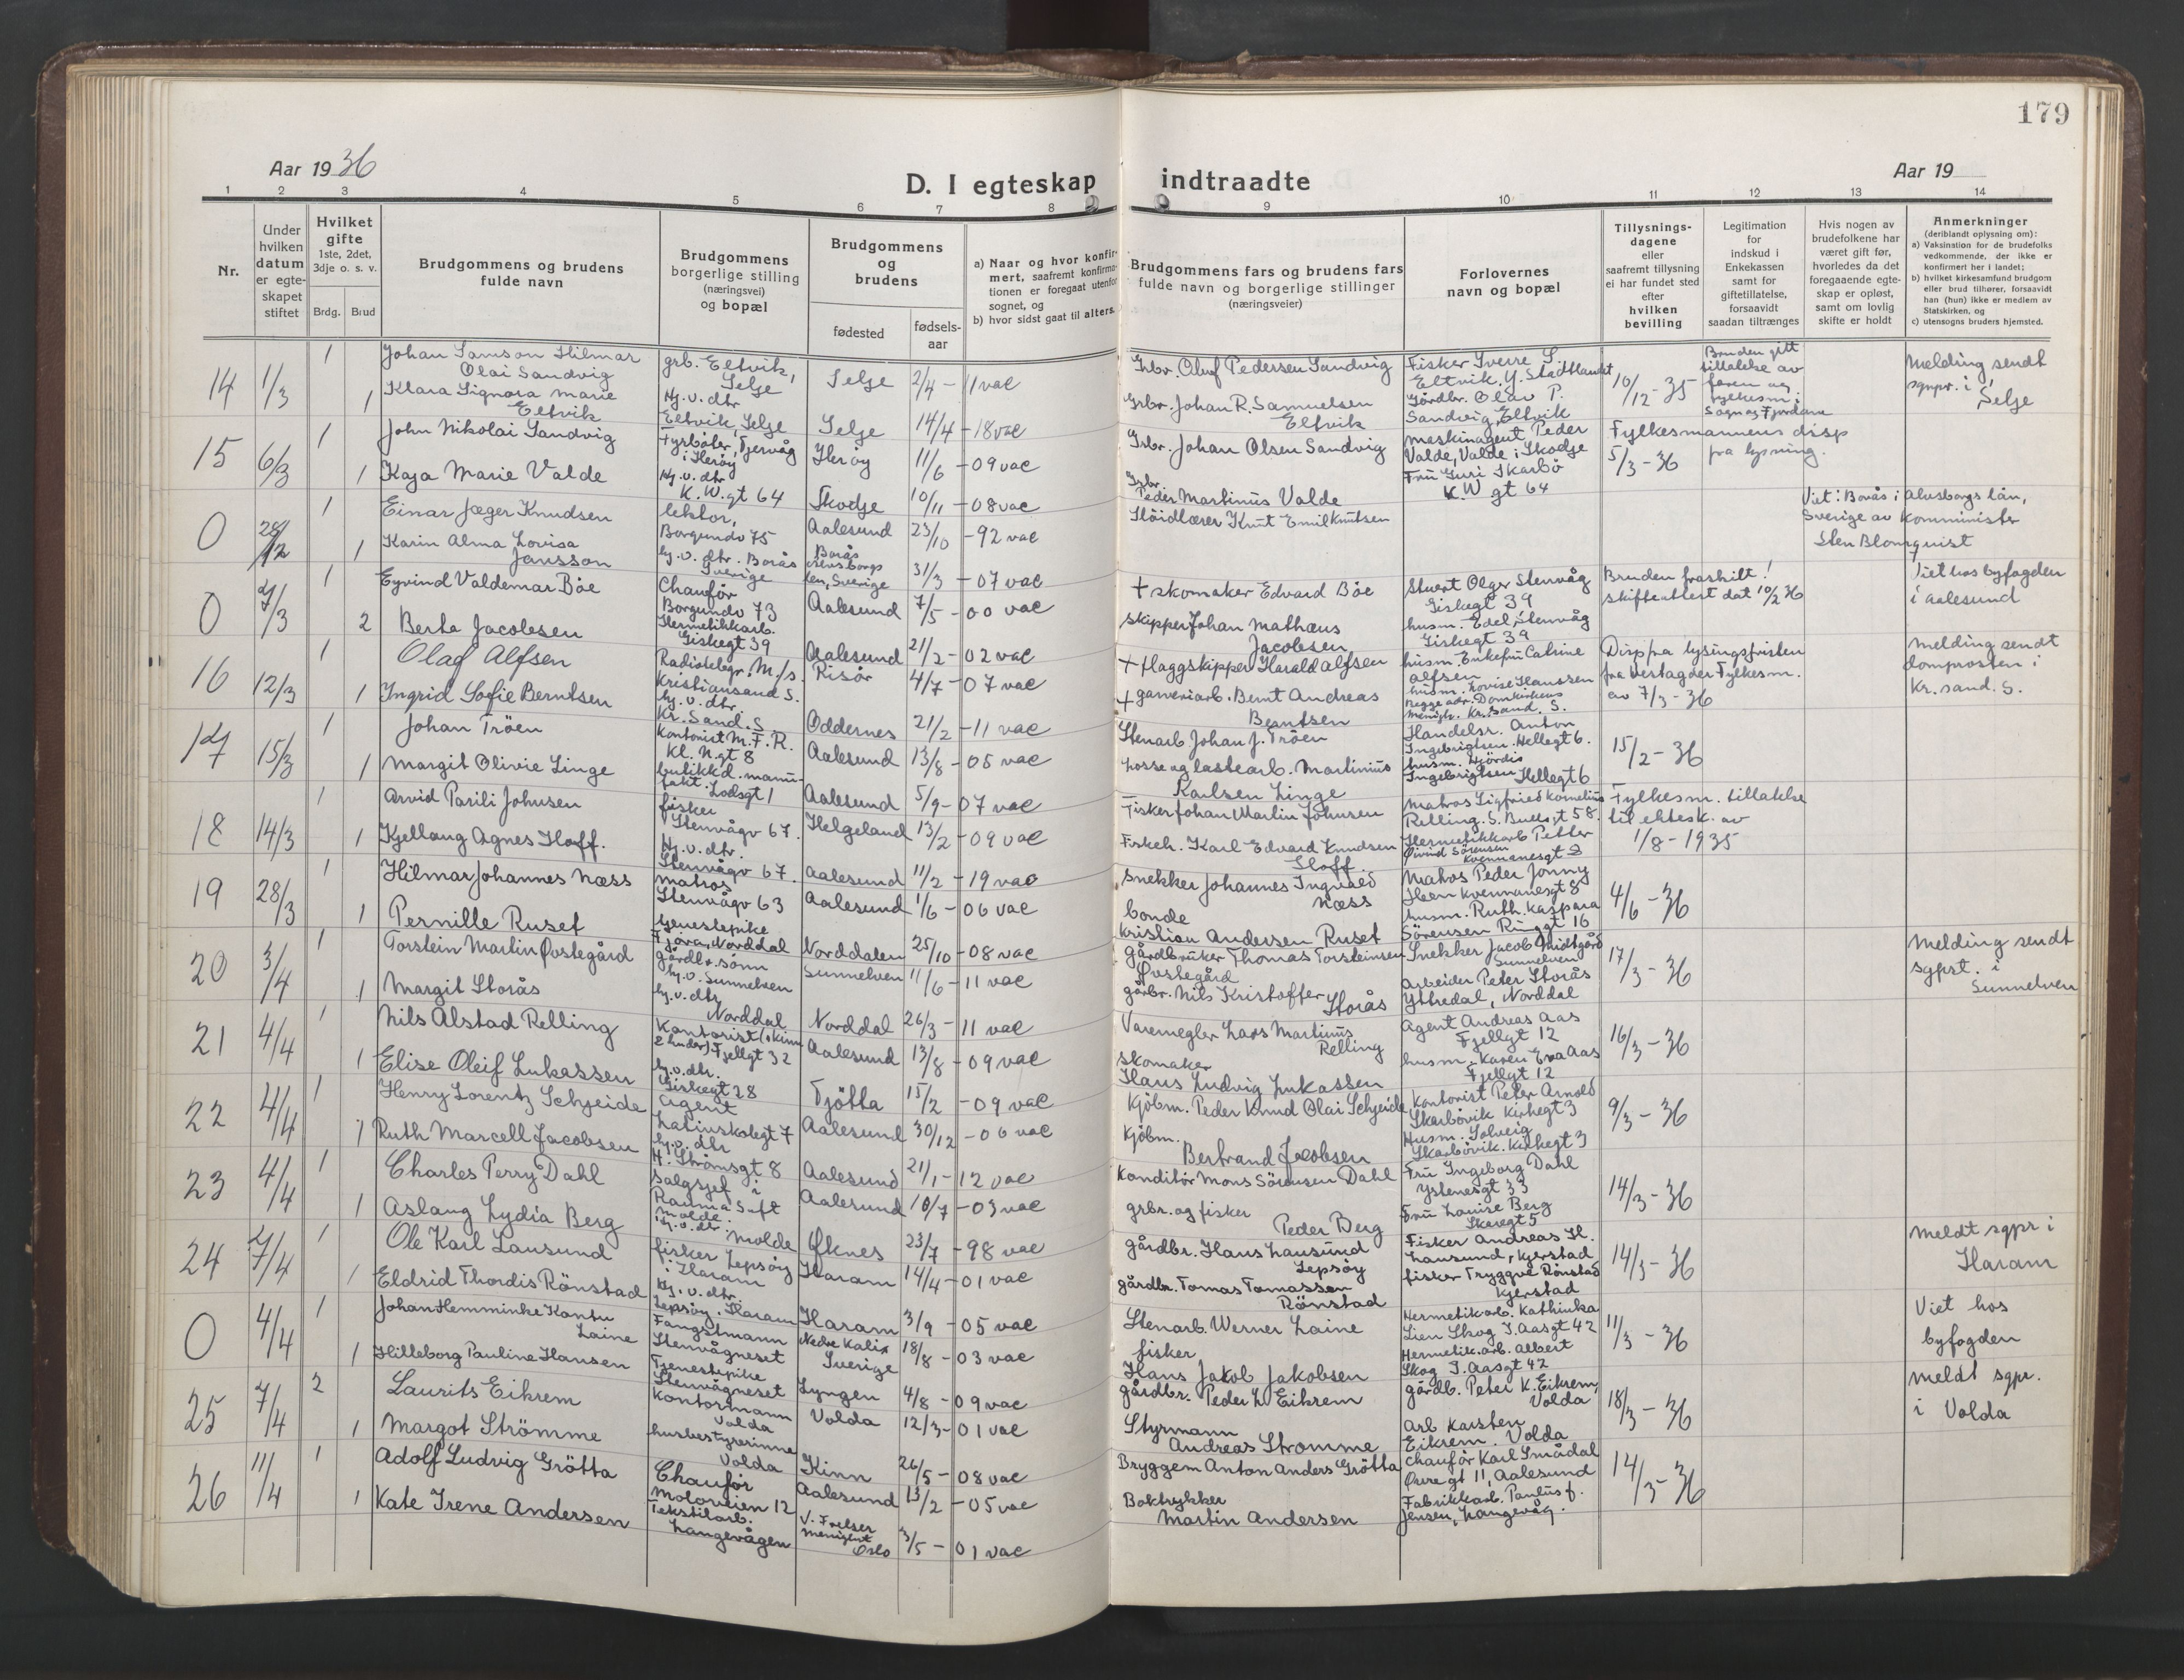 179
Aar 1936
Aar 19
D. I egteskap indtraadte
1 2 3 4 5 6 7 8 9 10 11 12 13 14
Nr.
Under hvilken datum er egteskapet stiftet
Hvilket gifte
1ste, 2det, 3dje o. s. v.
Brdg. Brud
Brudgommens og brudens fulde navn
Brudgommens borgerlige stilling (næringsvei) og bopæl
Brudgommens og brudens
fødested
fødsels-aar
a) Naar og hvor konfirmert, saafremt konfirmationen er foregaat utenfor sognet, og
b) hvor sidst gaat til alters.
Brudgommens fars og brudens fars fulde navn og borgerlige stillinger (næringsveier)
Forlovernes navn og bopæl
Tillysnings-dagene eller saafremt tillysning ei har fundet sted efter hvilken bevilling
Legitimation for indskud i Enkekassen samt for giftetillatelse, forsaavidt saadan tiltrænges
Hvis nogen av brudefolkene har været gift før, hvorledes da det foregaaende egteskap er opløst, samt om lovlig skifte er holdt
Anmerkninger
(deriblandt oplysning om):
a) Vaksination for de brudefolks vedkommende, der ikke er konfirmert her i landet;
b) hvilket kirkesamfund brudgom eller brud tilhører, forsaavidt han (hun) ikke er medlem av Statskirken, og
c) utensogns bruders hjemsted.
14 1/3 1 Johan Samson Hilmar Olai Sandvig grb. Eltvik, Selje Selje 2/4 - 11 vac Grbr. Oluf Pedersen Sandvig Fisker Sverre S. Eltvik, Y. Stadtlandet 10/12 - 35 Bruden gitt tillatelse av faren og fylkesm. i Sogn og Fjordane Melding sendt sgnpr. i Selje
1 Klara Signora Marie Eltvik Hj.v. dtr Eltvik, Selje Selje 14/4 - 18 vac Grbr. Johan R. Samuelsen Eltvik Gårdbr. Olav P. Sandvig, Eltvik
15 6/3 1 John Nikolai Sandvig Fyrbøter, Tjervåg i Herøy Herøy 11/6 - 09 vac Grbr. Johan Olsen Sandvig Maskinagent Peder Valde, Valde i Skodje Fylkesmannens disp fra lysning. 5/3 - 36
1 Kaja Marie Valde Hj.v. dtr K.W.gt 64 Skodje 10/11 - 08 vac Grbr. Peder Martinus Valde Frü Guri Skarbö K.W gt 64
0 28/12 1 Einar Jæger Knudsen lektor, Borgundv 75 Aalesund 23/10 - 92 vac Slöidlærer Knut Emil Knutsen Viet: Borås i Alvsborgs län, Sverige av komminister Sten Blomquist
1 Karin Alma Lovisa Jansson hj.v. dtr. Borås Sverige Borås len, Sverige 31/3 - 07 vac
0 7/3 1 Eyvind Valdemar Böe Chauför Borgundv 73 Aalesund 7/5 - 00 vac + skomaker Edvard Böe Stuert Olger Stenvåg Giskegt 39 Bruden fraskilt! skifteattest dat 10/2 36 Viet hos byfogden i Aalesund
2 Berta Jacobsen Hermetikkarb. Giskegt 39 Aalesund 21/2 - 02 vac skipper Johan Mathæus Jacobsen husm. Edel Stenvåg Giskegt 39
16 12/3 1 Olaf Alfsen Radiotelegr. M/s. Kristiansand S. Risör 4/7 - 07 vac + flaggskipper Harald Alfsen husm. Enkefrü Catrine Alfsen Disp fra lysingsfristen fra Vestagder Fylkesm. av 7/3 - 36 Melding sendt domprosten i Kr. sand. S.
1 Ingrid Sofie Berntsen hj.v. dtr Kr. Sand. S Oddernes 21/2 - 11 vac + garveriarb. Bernt Andreas Berntsen husm. Lovise Hanssen Begge adr. Domkirkens menigh. Kr.sand. S.
17 15/3 1 Johan Tröen Kontorist M.F.R. Kl. N.gt 8 Aalesund 13/8 - 05 vac Stenarb Johan J. Tröen Handelsr. Anton Ingebrigtsen. Hellegt 6. 15/2 - 36
1 Margit Olivie Linge butikkd. manufakt. Lodsgt 1 Aalesund 5/9 - 07 vac Losse og lastearb. Martinius Karlsen Linge husm. Hjördis Ingebrigtsen Hellegt 6
18 14/3 1 Arvid Parili Johnsen fisker Stenvågv 67. Helgeland 13/2 - 09 vac Fisker Johan Martin Johnsen Matros Sigfried Kornelius Relling. S. Bullsgt 58. Fylkesm. tillatelse til ektesk. av 1/8 - 1935
1 Kjellaug Agnes Hoff. Hj.v. dtr. Stenvågv 67. Aalesund 11/2 - 19 vac Fiskeh. Karl Edvard Knudsen Hoff Hermetikkarb Petter Öivind Sörensen Kvennanesgt 2
19 28/3 1 Hilmar Johannes Næss matros Stenvågv 63 Aalesund 1/6 - 06 vac snekker Johannes Ingvald Næss Matros Peder Jonny Steen Kvennanesgt 8 4/6 - 36
1 Pernille Ruset tjenestepike Fjöra, Norddal Norddalen 25/10 - 08 vac bonde Kristian Andersen Ruset husm. Ruth. Kaspara Sörensen Ringgt 16
20 3/4 1 Torstein Martin Ovstegård gårdbr. sönn hj.v. Sunnelven Sunnelven 11/6 - 11 vac gårdbruker Thomas Torsteinsen Ovstegård Snekker Jacob Midtgård Sunnelven 17/3 - 36 Melding sendt sgpst. i Sunnelven
1 Margit Storås hj.v. dtr Norddal Norddal 26/3 - 11 vac gårbr. Nils Kristoffer Storås arbeider Peter Storås Yttredal, Norddal
21 4/4 1 Nils Alstad Relling Kontorist (skinn & huder) Fjellgt 32 Aalesund 13/8 - 09 vac Varemegler Lars Martinus Relling Agent Andreas Aas Fjellgt 12 16/3 - 36
1 Elise Oleif Lukassen hj.v. dtr. Giskegt 28 Tjötta 15/2 - 09 vac skomaker Hans Ludvig Lukassen husm. Karen Eva Aas Fjellgt 12
22 4/4 1 Henry Lorentz Schjeide agent Latinskolegt 7 Aalesund 30/12 - 06 vac Kjöbm. Peder Knud Olai Schjeide Kontorist Peter Arnold Skarbövik Kirkegt 3 9/3 - 36
1 Ruth Marcell Jacobsen hj.v. dtr H. Strömsgt 8 Aalesund 21/1 - 12 vac Kjöbm. Bertrand Jacobsen Husm. Solveig Skarbövik. Kirkegt 3
23 4/4 1 Charles Perry Dahl salgssjef i Rauma Saft Molde. Aalesund 10/7 - 03 vac Konditör Mons Sörensen Dahl Frü Ingeborg Dahl Ystenesgt 33 14/3 - 36
1 Aslaug Lydia Berg hj.v. dtr. Molde Öknes 23/7 - 98 vac grbr. og fisker Peder Berg Frü Louise Berg Skaregt 5
24 7/4 1 Ole Karl Lausund fisker Lepsöy i Haram Haram 14/4 - 01 vac gårdbr. Hans Lausund Lepsöy Fisker Andreas H. Lausund, Kjerstad 14/3 - 36 Meldt sgpr i Haram
1 Eldrid Thordis Rönstad Hj.v. dtr. Lepsöy. Haram Haram 3/9 - 05 vac gårdbr. Tomas Tomassen Rönstad fisker Tryggve Rönstad Kjerstad
0 4/4 1 Johan Hemminke Kontu Laine Fangstmann Stenvågneset Nedre Kalix Sverige 18/8 - 03 vac Stenarb. Werner Laine Hermetikarb. Kathinka Lien Skog J. Aasgt 42 11/3 - 36 Viet hos byfogden
1 Hilleborg Pauline Hansen Tjenestepike Stenvågneset Lyngen 4/8 - 09 vac fisker Hans Jakob Jakobsen Hermetik.arb. Albert Skog J. Aasgt 42
25 7/4 2 Laurits Eikrem Kontormann Volda Volda 12/3 - 01 vac gårdbr. Peder L. Eikrem gårdb. Peter K. Eikrem, Volda 18/3 - 36 meldt sgpr. i Volda
1 Margot Strömme husbestyrerinne Volda Kinn 26/5 - 08 vac Styrmann Andreas Stromme Arb Karsten Eikrem. Volda
26 11/4 1 Adolf Ludvig Grötta Chauför Moloveien 12 Aalesund 13/2 - 05 vac Bryggem Anton Anders Grötta chauför Karl Smådal Övre gt 11, Aalesund 14/3 - 36
1 Kate Irene Andersen Tekstilarb. Langevågen V. Frelser menighet Oslo 3/5 - 01 vac Boktrykker Martin Andersen Fabrikkarb. Paulus J. Jensen, Langevåg.